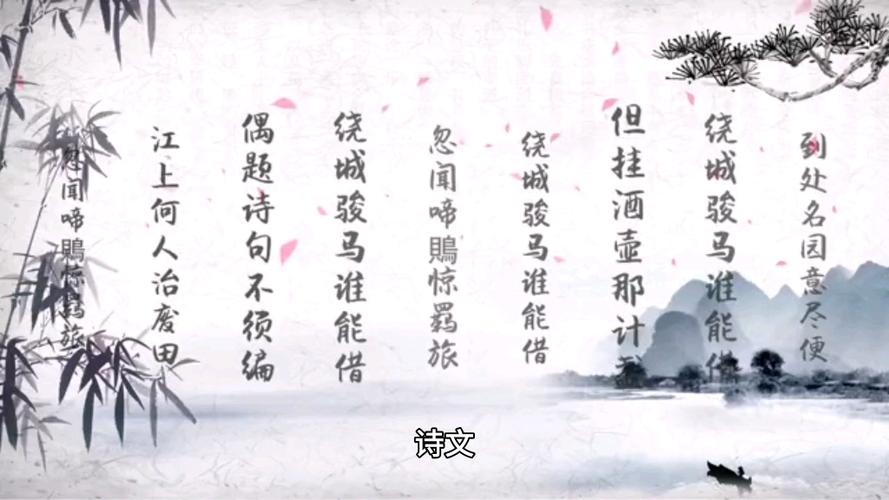 到处名园意尽便
绕城骏马谁能借
但挂酒壶那计
绕城骏马谁能借
忽闻啼鵙惊羁旅
绕城骏马谁能借
偶题诗句不须编
江上何人治废田
忽闻啼鵙惊羁旅
诗文